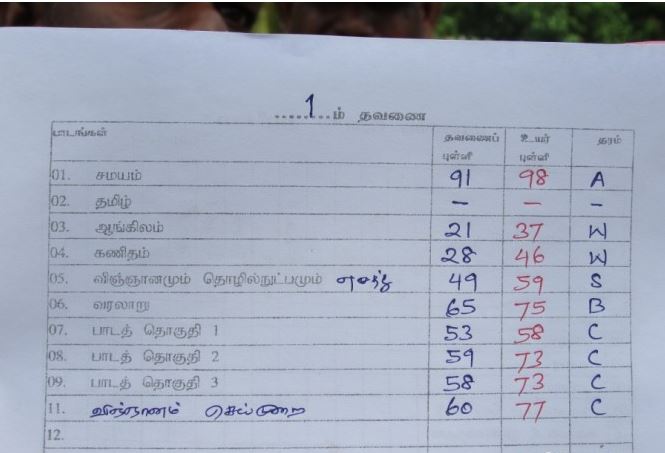 ......1...ம் தவணை
பாடங்கள் தவணைப் புள்ளி உயர் புள்ளி தரம்
01. சமயம் 91 98 A
02. தமிழ் – – –
03. ஆங்கிலம் 21 37 W
04. கணிதம் 28 46 W
05. விஞ்ஞானமும் தொழில்நுட்பமும் 49 59 S
06. வரலாறு 65 75 B
07. பாடத் தொகுதி 1 53 58 C
08. பாடத் தொகுதி 2 59 73 C
09. பாடத் தொகுதி 3 58 73 C
11. விஞ்ஞானம் செய்முறை 60 77 C
12.